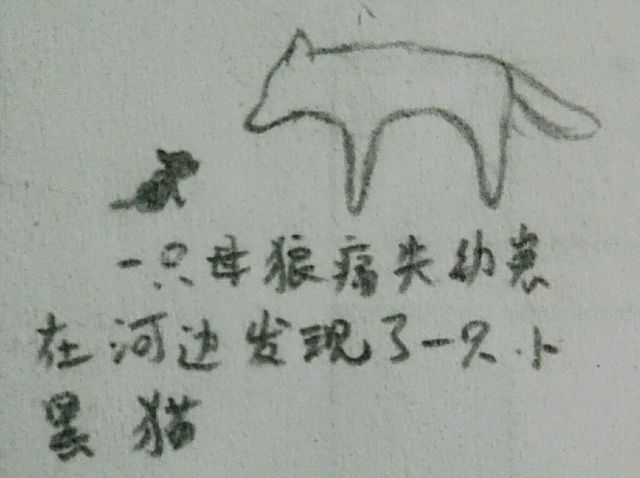 一只母狼痛失幼崽
在河边发现了一只小
黑猫